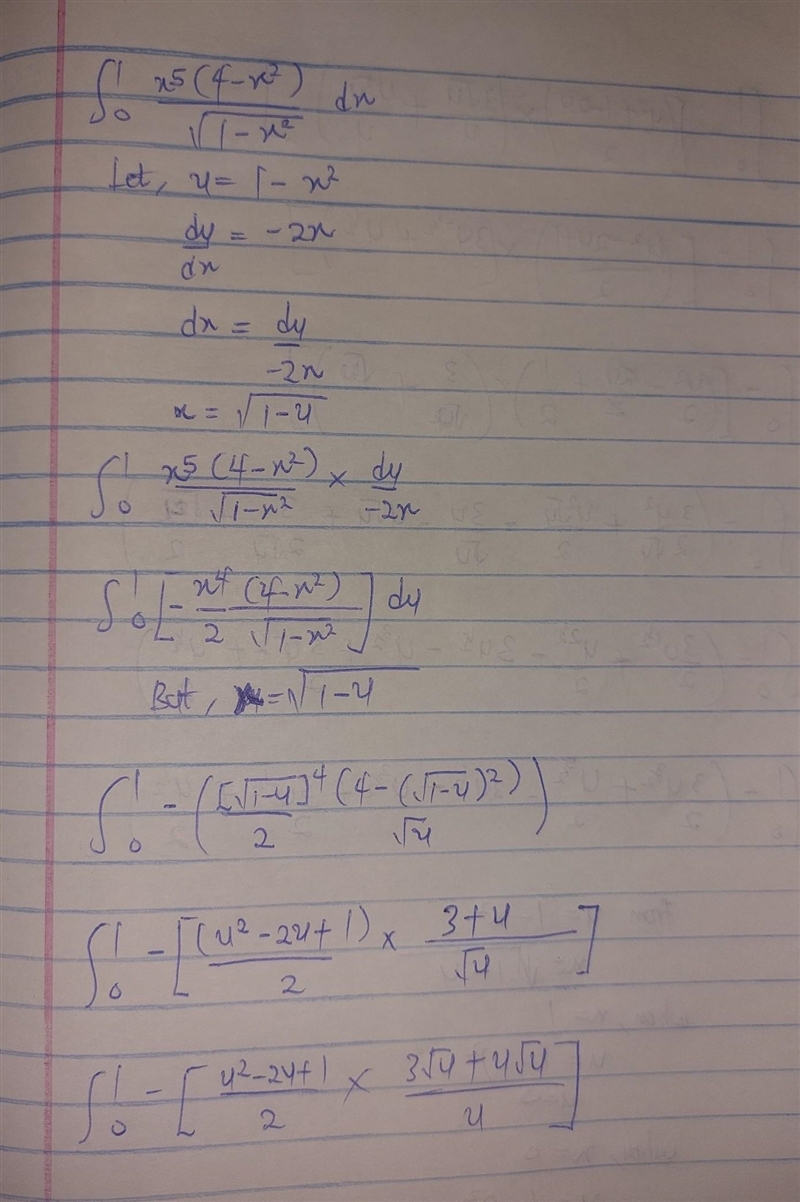 ∫₀¹ x⁵(4-x²)/√(1-x²) dx
Let, u = 1-x²
du/dx = -2x
dx = du/-2x
x = √(1-u)
∫₀¹ x⁵(4-x²)/√(1-x²) × du/-2x
∫₀¹ [-x⁴/2 (4-x²)/√(1-x²)] du
But, x = √(1-u)
∫₀¹ -([√(1-u)]⁴/2 (4-(√(1-u))²)/√u)
∫₀¹ -[(u²-2u+1)/2 × (3+u)/√u]
∫₀¹ -[(u²-2u+1)/2 × (3√u+u√u)/u]